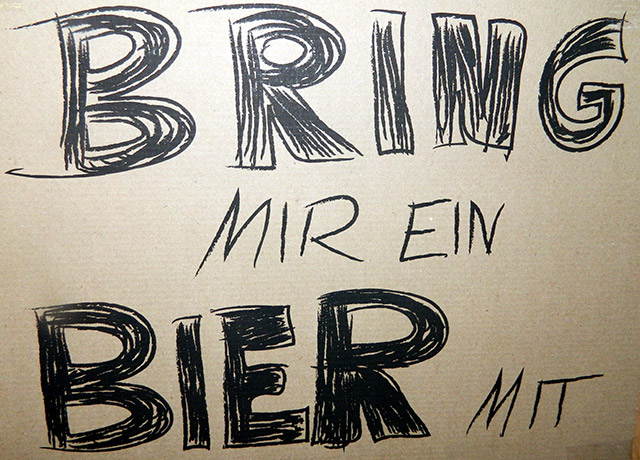 BRING
MIR EIN
BIER MIT